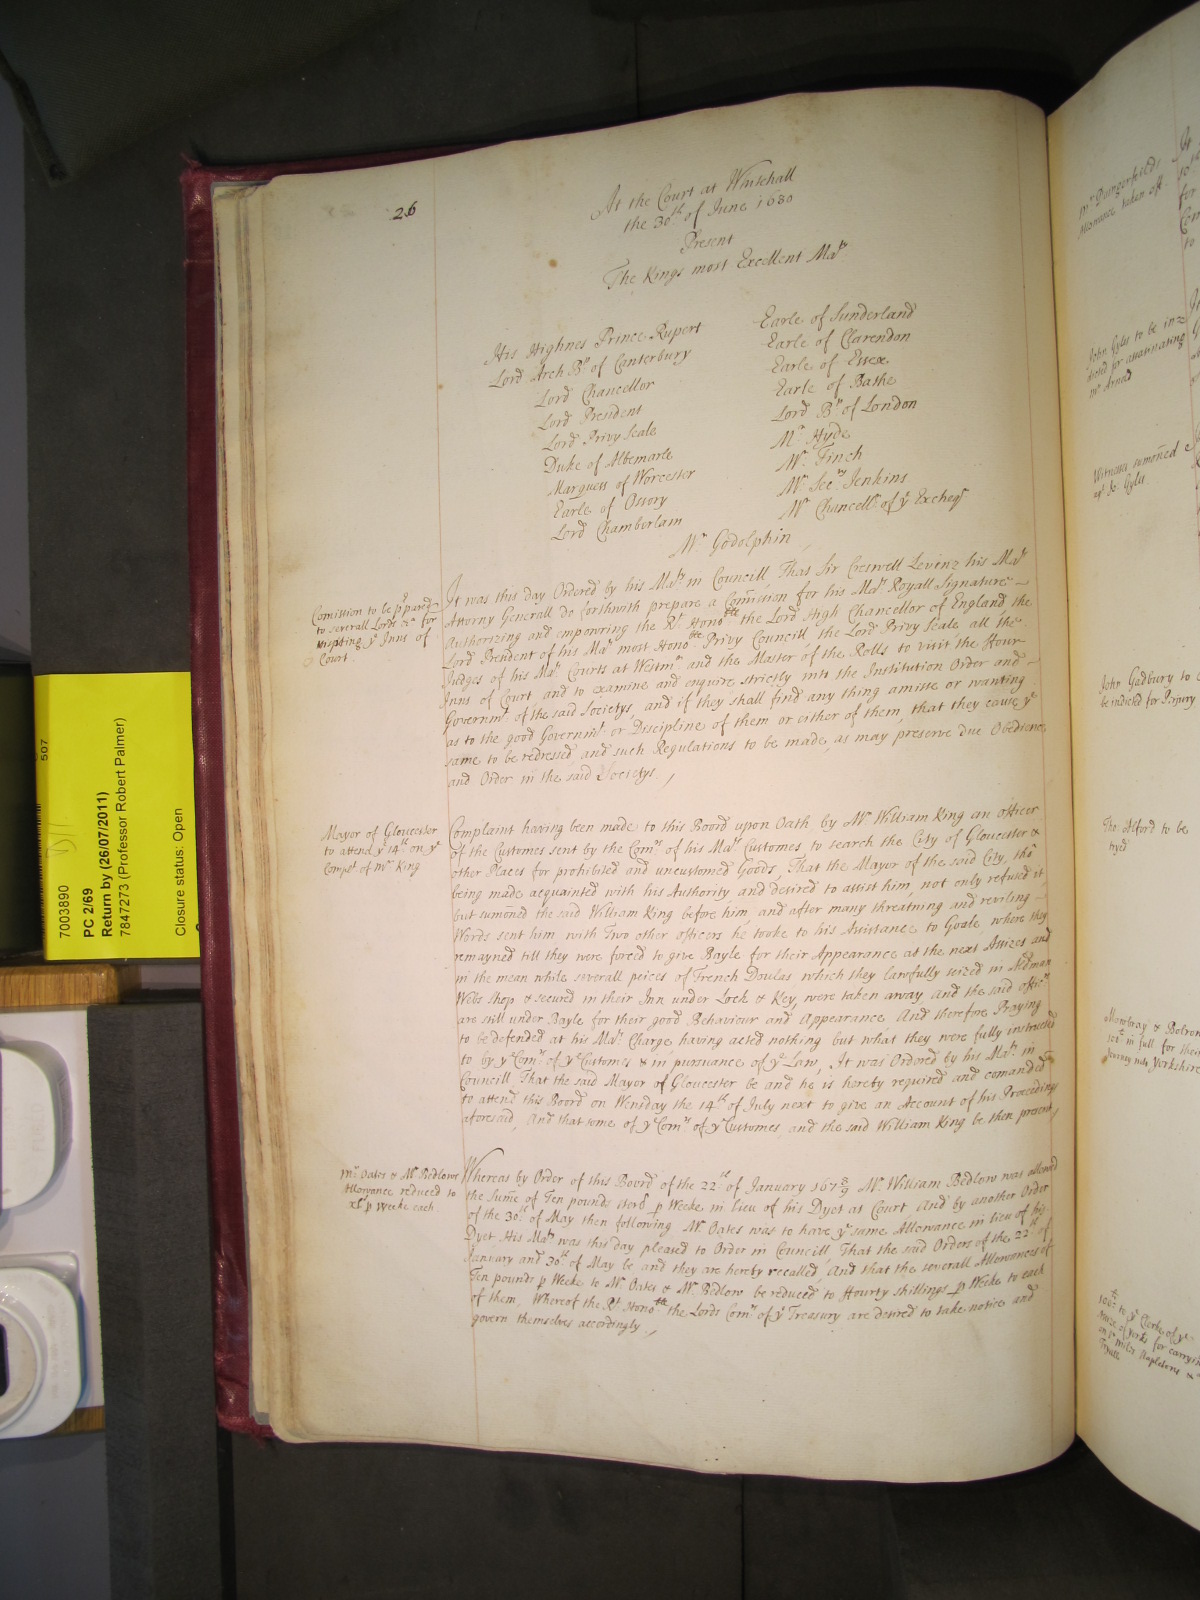 26
At the Court at Whitehall
the 30th of June 1680
Present
The Kings most Excellent Maty
His Highnes Prince Rupert
Lord Arch Bp of Canterbury
Lord Chancellor
Lord President
Lord Privy Seale
Duke of Albemarle
Marquess of Worcester
Earle of Ossory
Lord Chamberlain
Earle of Sunderland
Earle of Clarendon
Earle of Essex
Earle of Bathe
Lord Bp of London
Mr Hyde
Mr Finch
Mr Secry Jenkins
Mr Chancellr of ye Excheqr
Mr Godolphin
Comission to be ppared
to severall Lords &c for
visiting ye Inns of
Court
It was this day Ordered by his Maty in Councill, That Sir Creswell Levinz his Mats
Attorny Generall do forthwith prepare a Comission for his Mats Royall Signature
Authorizing and empowring the Rt Honoble the Lord High Chancellor of England the
Lord President of his Mats most Honoble Privy Councill the Lord Privy Seale all the
Judges of his Mats Courts at Westmr and the Master of the Rolls to visit the Four
Inns of Court and to examine and enquire strictly into the Institution Order and
Governmt of the said Societys, and if they shall find any thing amisse or wanting
as to the good Governmt or Discipline of them or either of them, that they cause ye
same to be redressed, and such Regulations to be made, as may preserve due Obedience
and Order in the said Societys.
Mayor of Gloucester
to attend ye 14th on ye
Complt of Mr King
Complaint having been made to this Board upon Oath by Mr William King an officer
of the Customes sent by the Comrs of his Mats Customes to search the City of Gloucester &
other Places for prohibited and uncustomed Goods, That the Mayor of the said City, tho
being made acquainted with his Authority, and desired to assist him, not only refused it,
but sumoned the said William King before him, and after many threatning and reviling
Words sent him with Two other officers he tooke to his Assistance to Goale, where they
remayned till they were forced to give Bayle for their Appearance at the next Assizes and
in the mean while severall peices of French Doulas which they lawfully seized in Aldman
Webs shop & secured in their Inn under Lock & Key, were taken away And the said officrs
are still under Bayle for their good Behaviour and Appearance And therefore Praying
to be defended at his Mats Charge, having acted nothing but what they were fully instructed
to by ye Comrs of ye Customes & in pursuance of ye Law, It was Ordered by his Maty in
Councill That the said Mayor of Gloucester be and he is hereby required and comanded
to attend this Board on Wensday the 14th of July next to give an Account of his Proceedings
aforesaid, And that some of ye Comrs of ye Customes, and the said William King be then present
Mr Oates & Mr Bedlows
Allowance reduced to
xls p Weeke each
Whereas by Order of this Board of the 22th of January 1678/9 Mr William Bedlow was allowed
the Sume of Ten pounds sterl p Weeke in lieu of his Dyet at Court And by another Order
of the 30th of May then following Mr Oates was to have ye same Allowance in lieu of his
Dyet His Maty was this day pleased to Order in Councill, That the said Orders of the 22th of
January and 30th of May be and they are hereby recalled, And that the severall Allowances of
Ten pounds p Weeke to Mr Oates & Mr Bedlow be reduced to Fourty shillings p Weeke to each
of them, Whereof the Rt Honoble the Lords Comrs of ye Treasury are desired to take notice and
govern themselves accordingly.
Mr Dungerfeilds
Allowance taken off
John Gyles to be in=
dicted for assassinating
Mr Arnold
Witnesses sumoned
agt Jo: Gyles
John Gadbury to
be indicted for Prjury
Tho: Alford to be
tryed
Mowbray & Bolron
in full for their
Journey into Yorkshire
to ye Clerke of ye
Assize of Yorke for carrying
on Sr Miles Stapletons &c
Tryall
507
7003890
PC 2/69
Return by (26/07/2011)
7847273 (Professor Robert Palmer)
Closure status: Open